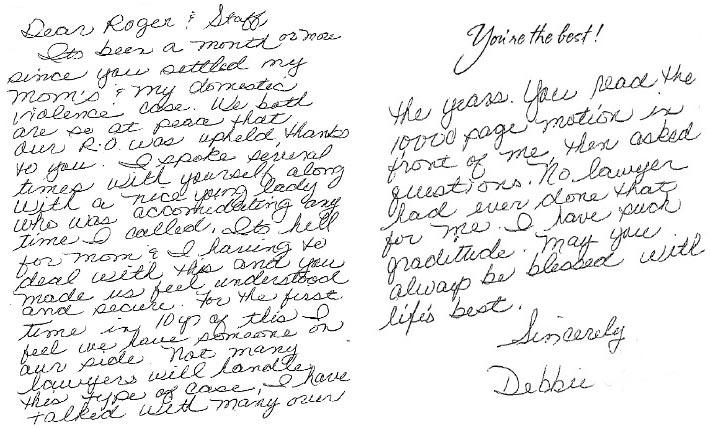 Dear Roger & Staff
Its been a month or more
since you settled my
mom's & my domestic
violence case. We both
are so at peace that
our R.O. was upheld, thanks
to you. I spoke several
times with yourself along
with a nice young lady
who was accomidating any
time I called. Its hell
for mom & I having to
deal with this and you
made us feel understood
and secure. For the first
time in 10 yrs of this I
feel we have someone on
our side. Not many
lawyers will handle
this type of case, I have
talked with many over
You're the best!
the years. You read the
10000 page motion in
front of me, then asked
questions. No lawyer
had ever done that
for me. I have such
graditude. May you
always be blessed with
life's best.
Sincerely
Debbie